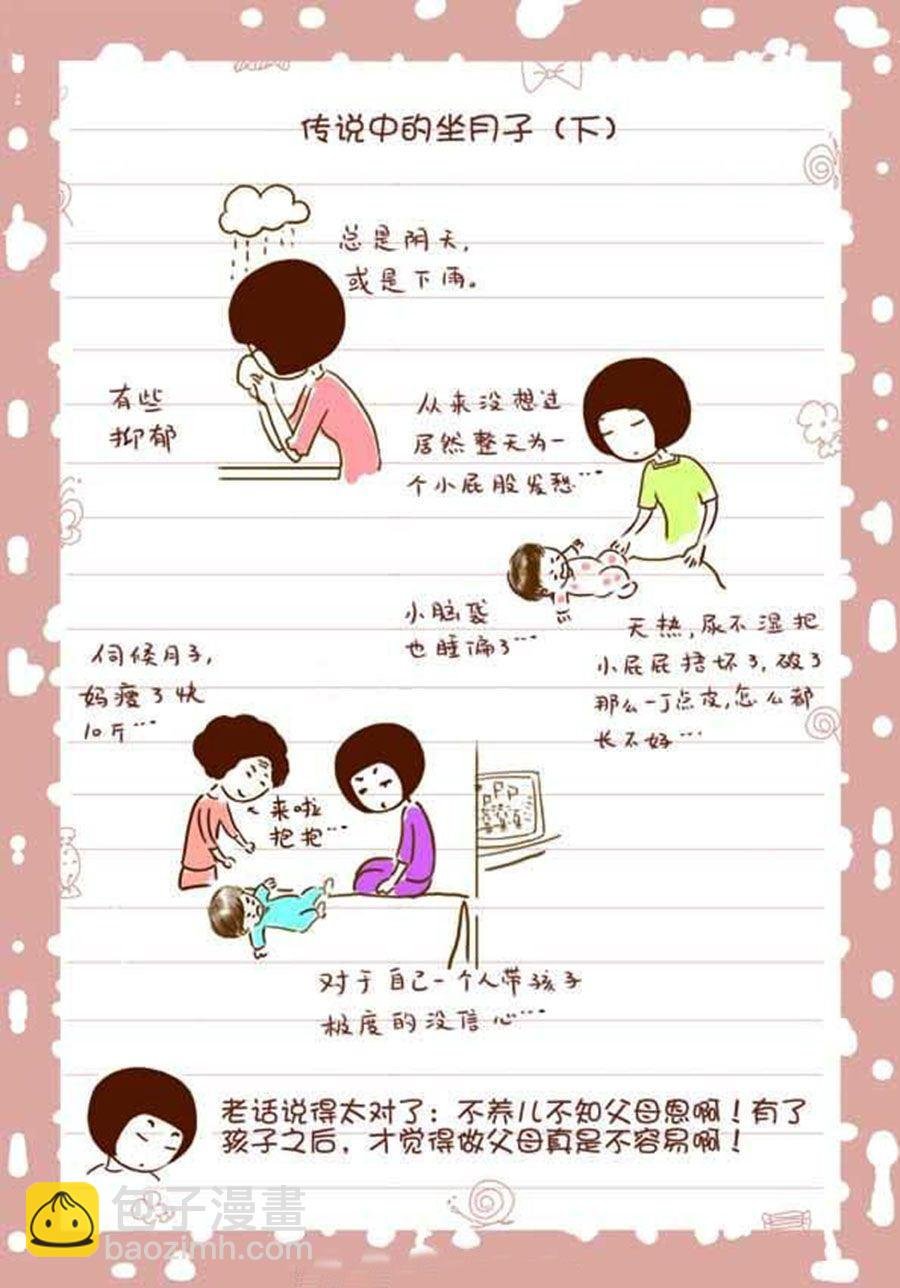 传说中的坐月子（下）
总是阴天，
或是下雨。
有些
抑郁
从来没想过
居然整天为一
个小屁股发愁…
小脑袋
也睡偏了…
天热，尿不湿把
小屁屁捂坏了，破了
那么一丁点皮，怎么都
长不好…
伺候月子，
妈瘦了快
10斤…
来啦
抱抱…
对于自己一个人带孩子
极度的没信心…
老话说得太对了：不养儿不知父母恩啊！有了
孩子之后，才觉得做父母真是不容易啊！
包子漫畫
baozimh.com